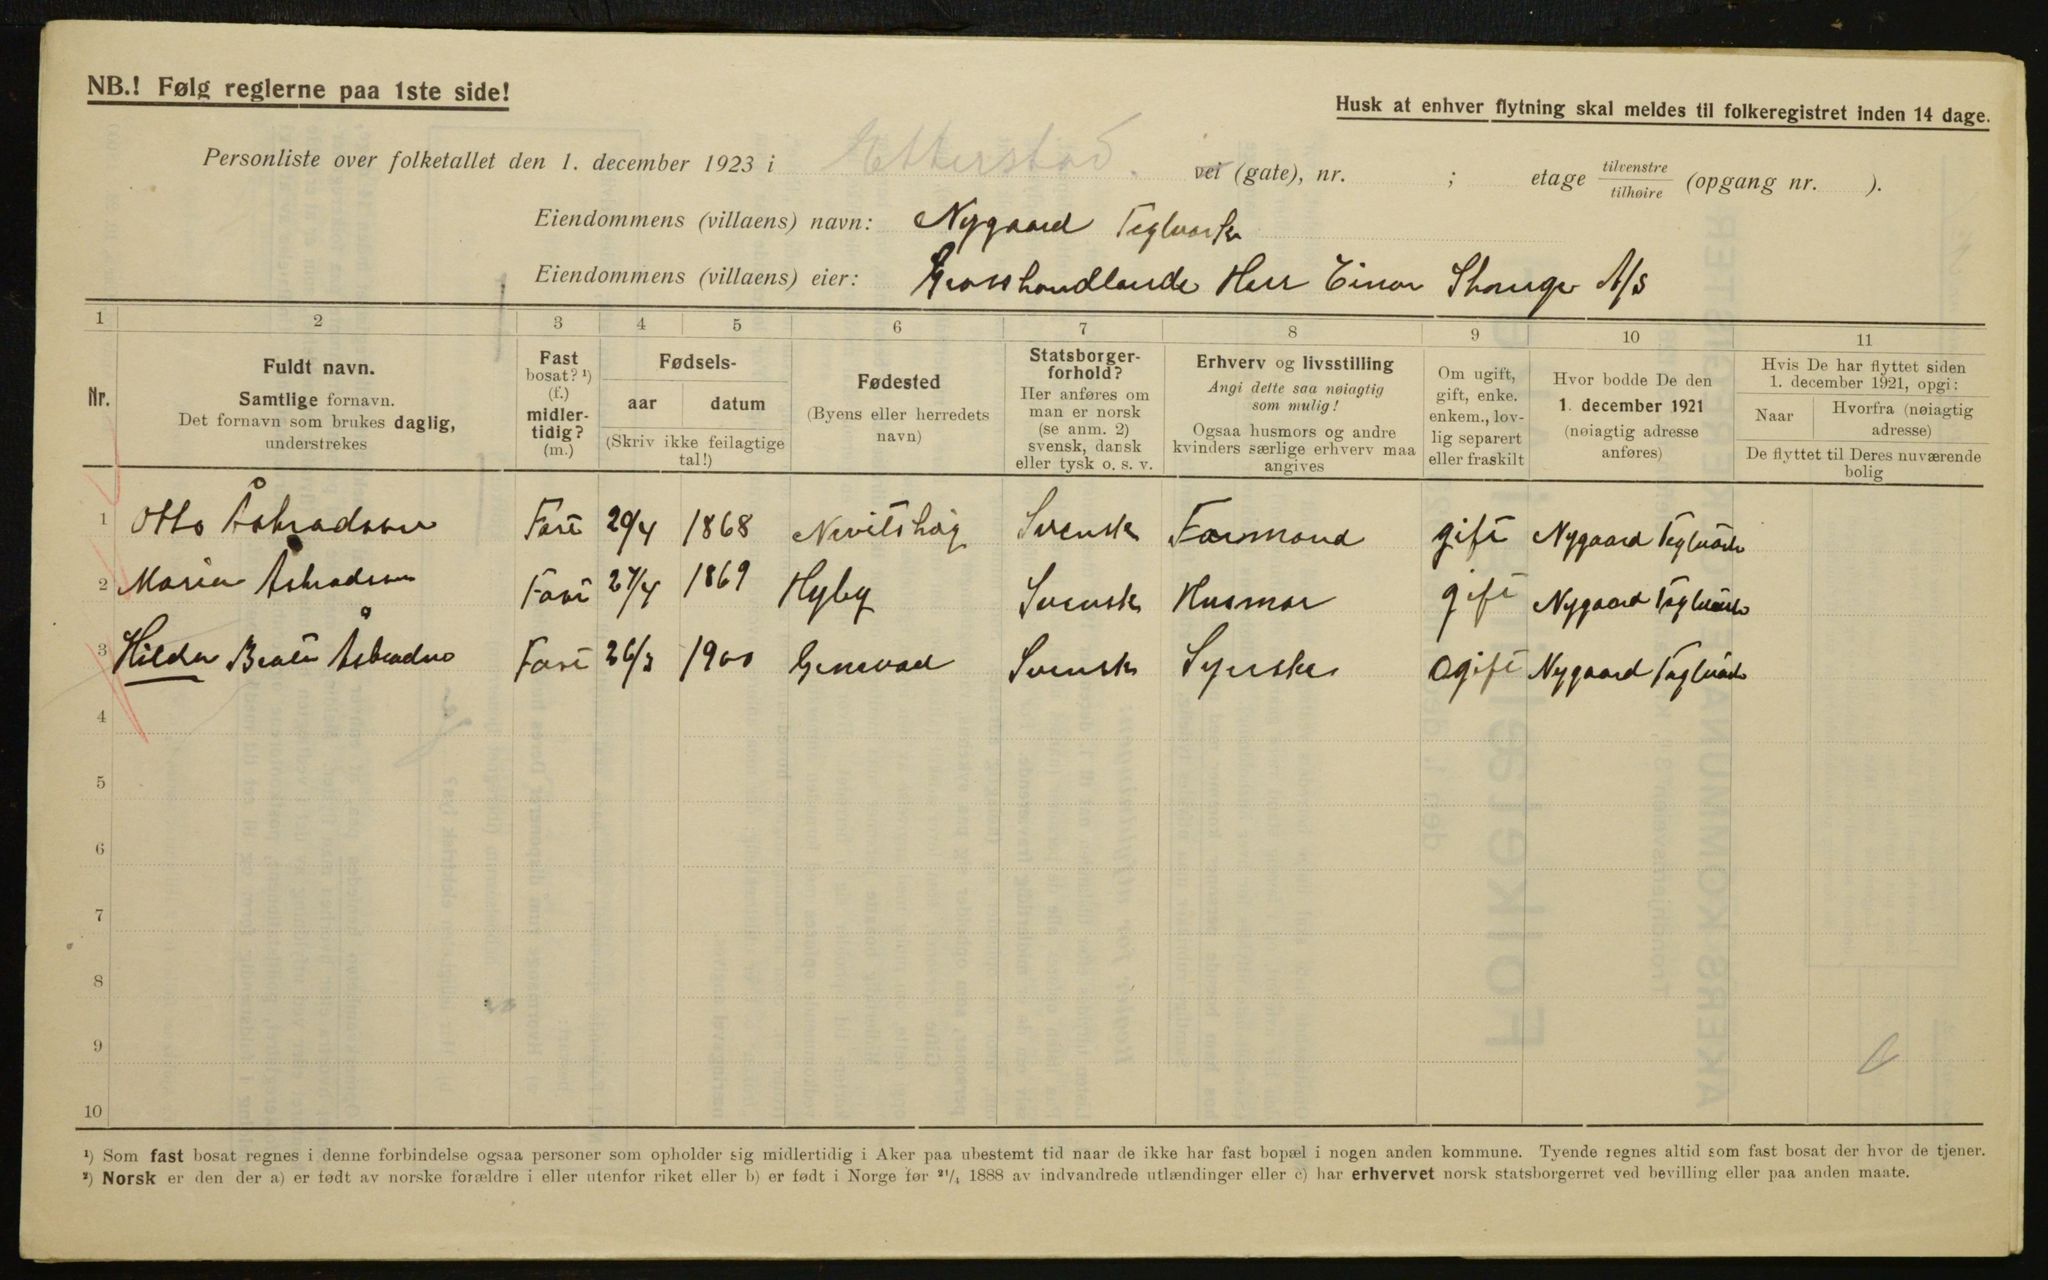 NB.! Følg reglerne paa 1ste side!
Husk at enhver flytning skal meldes til folkeregistret inden 14 dage.
Personliste over folketallet den 1. december 1923 i Etterstad. vei (gate), nr. ; etage tilvenstre tilhøire (opgang nr. ).
Eiendommens (villaens) navn: Nygaard Teglværk
Eiendommens (villaens) eier: Grosshandlande Herr Einar A/S
1 2 3 4 5 6 7 8 9 10 11
Nr.
Fuldt navn.
Samtlige fornavn.
Det fornavn som brukes daglig,
understrekes
Fast
bosat? ¹)
(f.)
midler-
tidig?
(m.)
Fødsels-
aar datum
(Skriv ikke feilagtige
tal!)
Fødested
(Byens eller herredets
navn)
Statsborger-
forhold?
Her anføres om
man er norsk
(se anm. 2)
svensk, dansk
eller tysk o. s. v.
Erhverv og livsstilling
Angi dette saa nøiagtig
som mulig!
Ogsaa husmors og andre
kvinders særlige erhverv maa
angives
Om ugift,
gift, enke.
enkem., lov-
lig separert
eller fraskilt
Hvor bodde De den
1. december 1921
(nøiagtig adresse
anføres)
Hvis De har flyttet siden
1. december 1921, opgi:
Naar Hvorfra (nøiagtig
adresse)
De flyttet til Deres nuværende
bolig
1 Otto Åstradsson Fast 20/4 1868 Nevitshög Svensk Formand gift Nygaard Teglværk
2 Maria Åstradsson Fast 27/4 1869 Hyby Svensk Husmor gift Nygaard Teglværk
3 Hilda Åstradson Fast 26/3 1900 Genevad Svensk Syerske ogift Nygaard Teglværk
4
5
6
7
8
9
10
¹) Som fast bosat regnes i denne forbindelse ogsaa personer som opholder sig midlertidig i Aker paa ubestemt tid naar de ikke har fast bopæl i nogen anden kommune. Tyende regnes altid som fast bosat der hvor de tjener.
²) Norsk er den der a) er født av norske forældre i eller utenfor riket eller b) er født i Norge før ²¹/₄ 1888 av indvandrede utlændinger eller c) har erhvervet norsk statsborgerret ved bevilling eller paa anden maate.